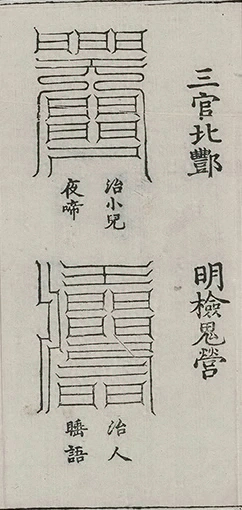 三官北酆
明檢鬼營
治小兒
夜啼
治人
睡語